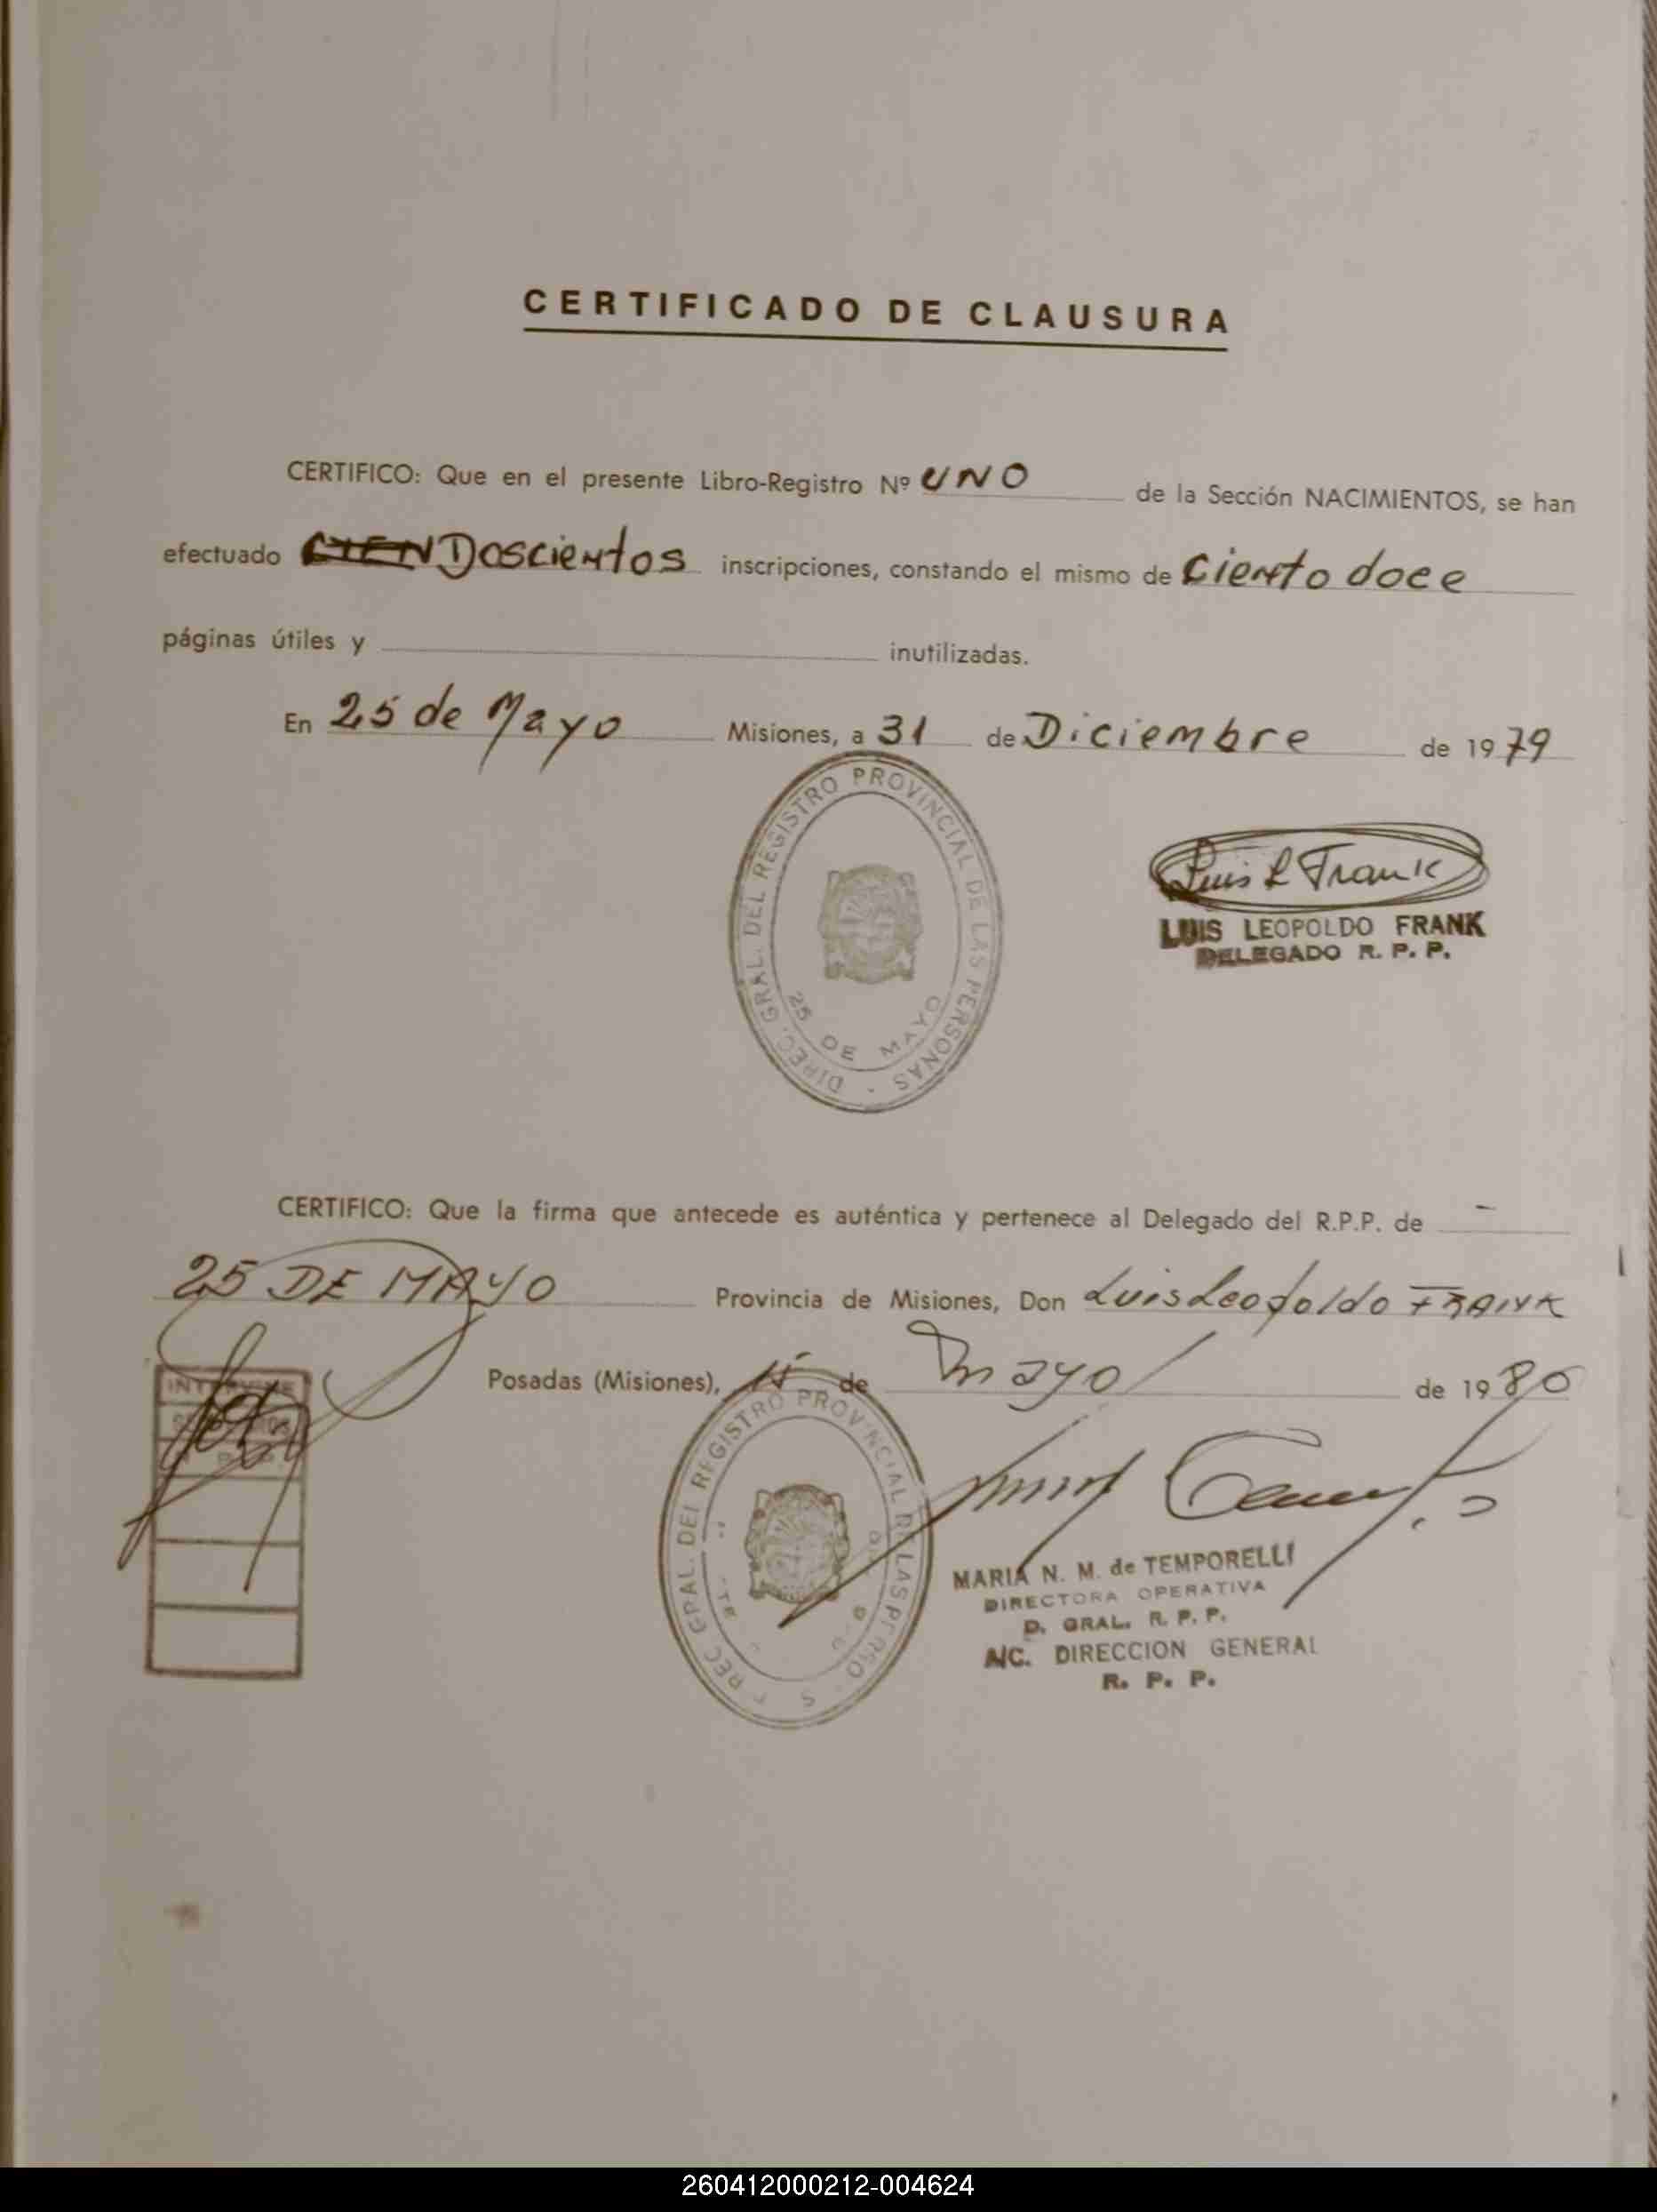 CERTIFICADO DE CLAUSURA
CERTIFICO: Que en el presente Libro-Registro Nº UNO de la Sección NACIMIENTOS, se han
efectuado CIEN Doscientos inscripciones, constando el mismo de Ciento doce
páginas útiles y inutilizadas.
En 25 de Mayo Misiones, a 31 de Diciembre de 1979
DIREC. GRAL. DEL REGISTRO PROVINCIAL DE LAS PERSONAS -
25 DE MAYO
Luis L Frank
LUIS LEOPOLDO FRANK
DELEGADO R. P. P.
CERTIFICO: Que la firma que antecede es auténtica y pertenece al Delegado del R.P.P. de -
25 DE MAYO Provincia de Misiones, Don Luis Leopoldo FRANK
Posadas (Misiones), de mayo de 1980
INTERVINE
GRAL. DEL REGISTRO PROVINCIAL DE LAS
MARIA N. M. de TEMPORELLI
DIRECTORA OPERATIVA
D. GRAL. R. P. P.
A/C. DIRECCION GENERAL
R. P. P.
260412000212-004624